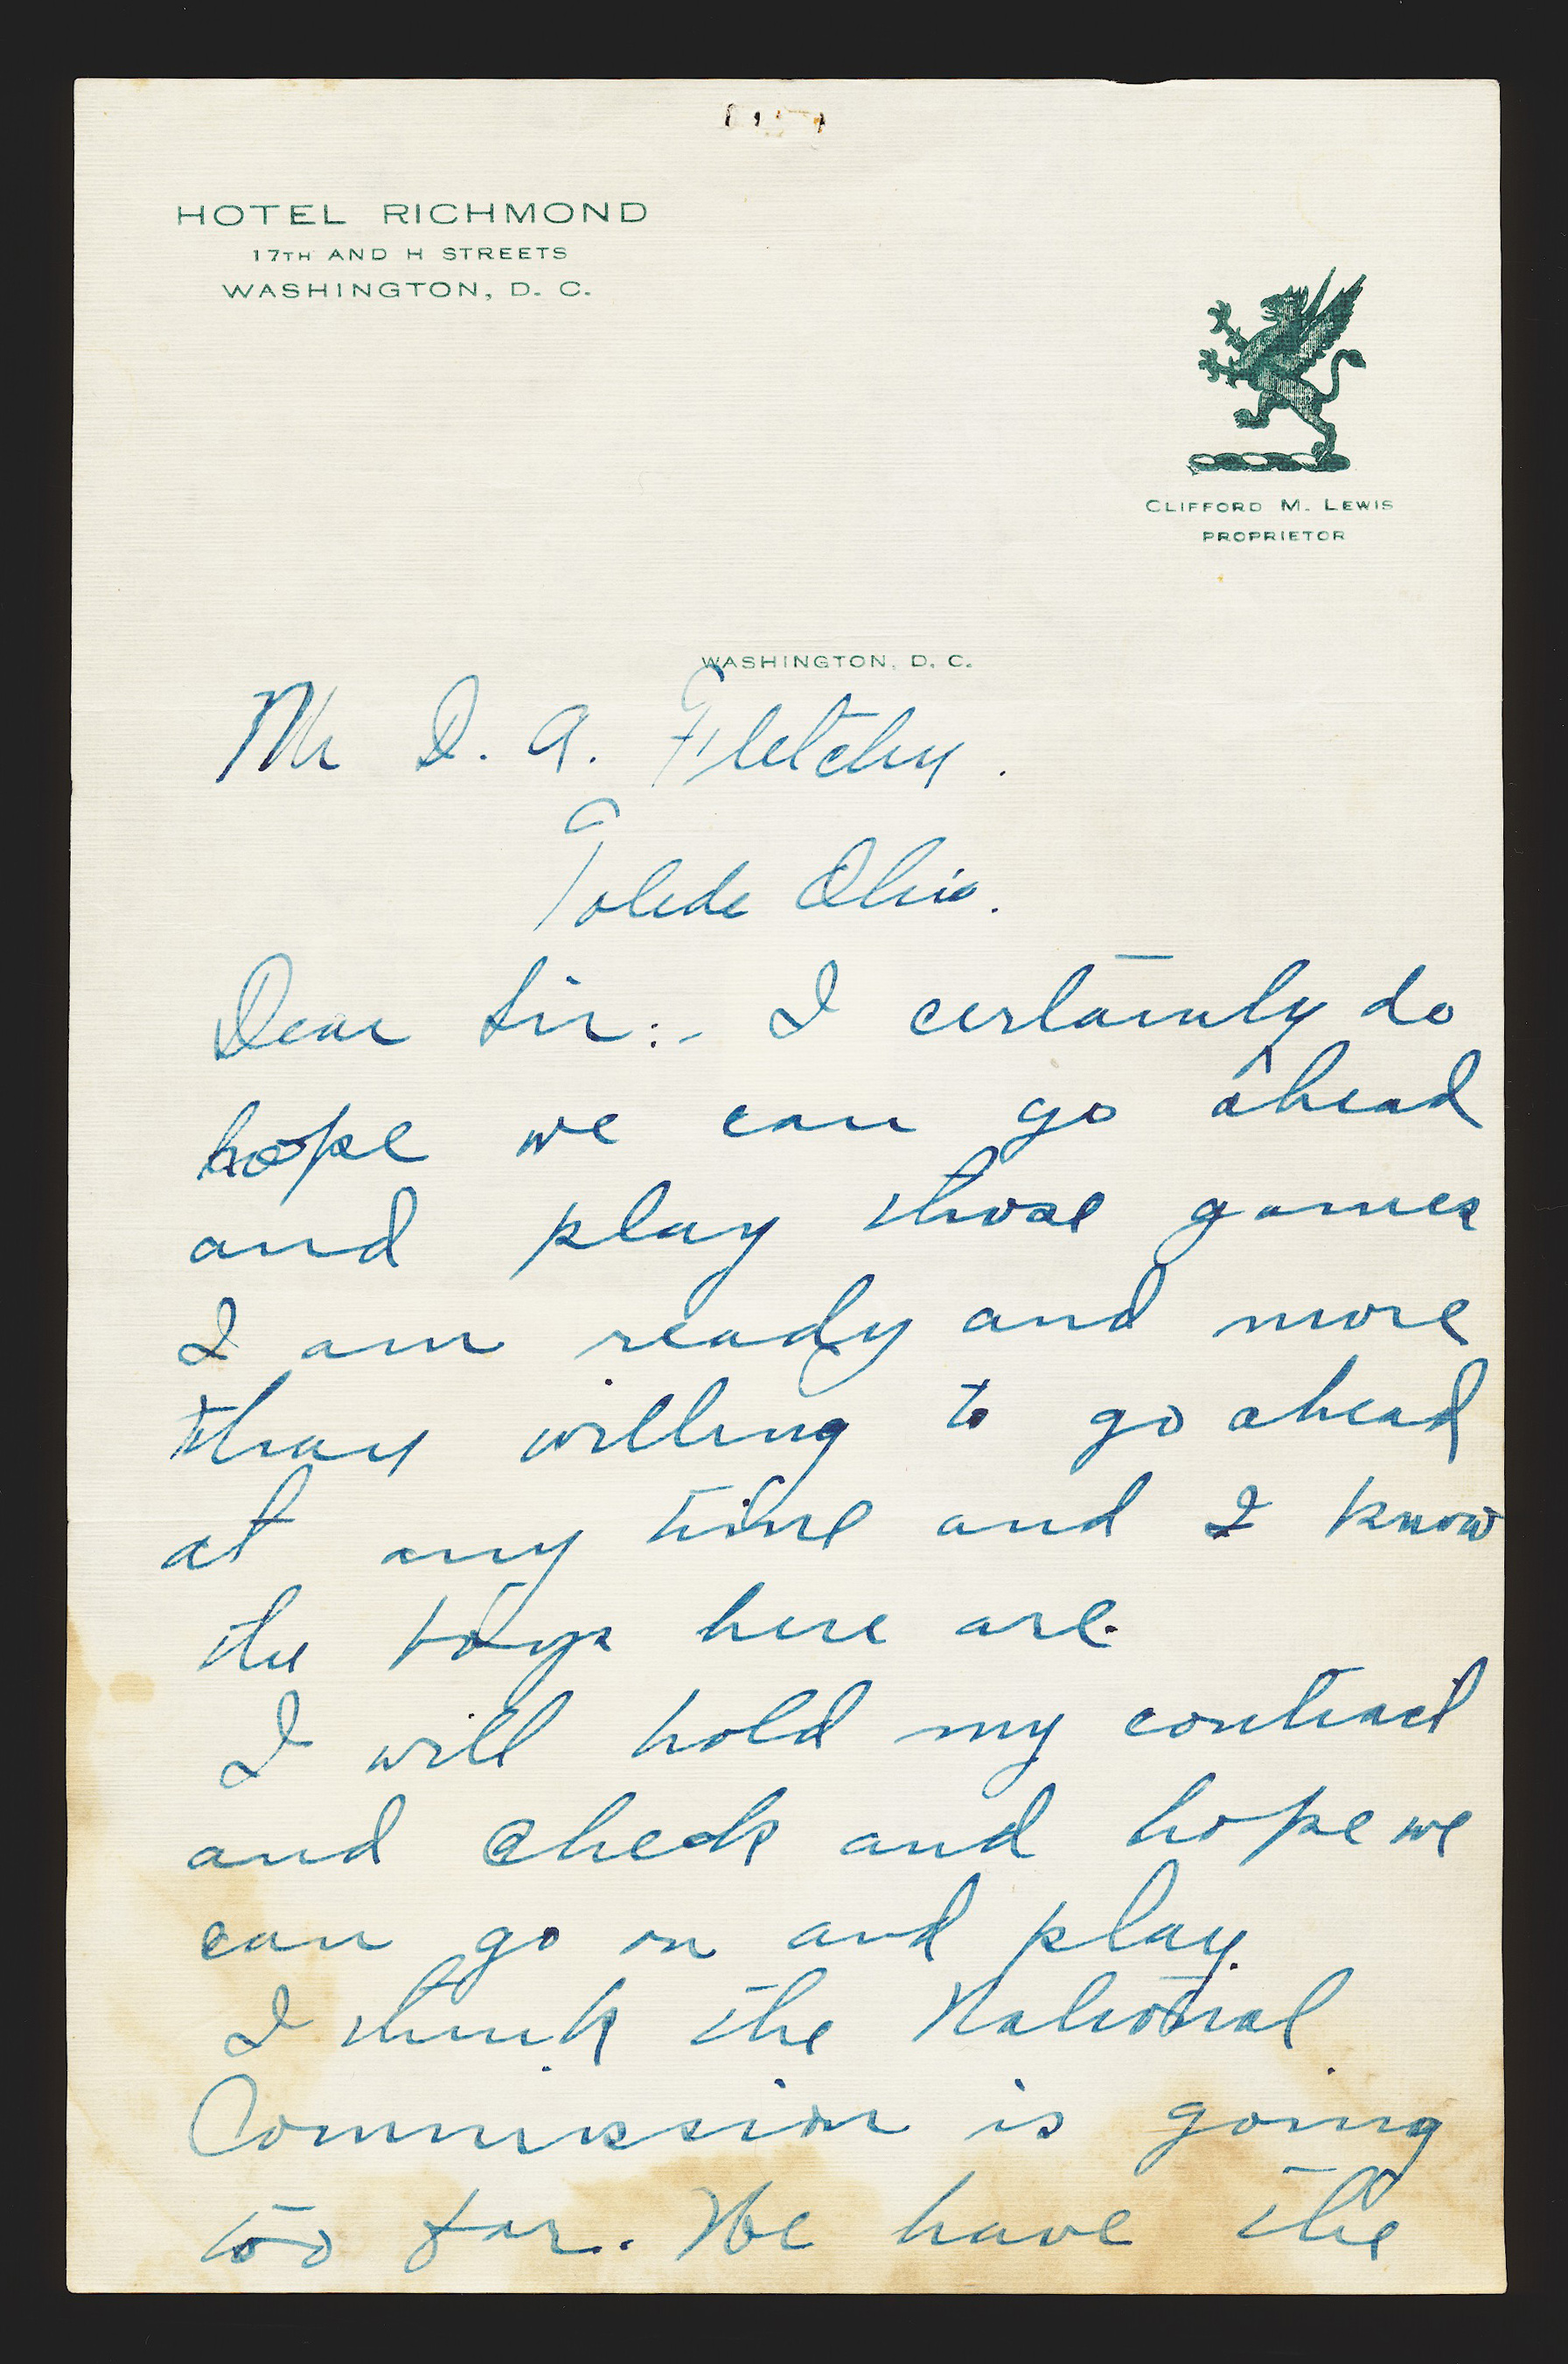 HOTEL RICHMOND
17TH AND H STREETS
WASHINGTON, D. C.
CLIFFORD M. LEWIS
PROPRIETOR
WASHINGTON, D. C.
Mr D. A. Fletcher.
Toledo Ohio.
Dear Sir:- I certainly do
hope we can go ahead
and play those games
I am ready and more
than willing to go ahead
at any time and I know
the boys here are.
I will hold my contract
and check and hope we
can go on and play.
I think the National
Commission is going
too far. We have the